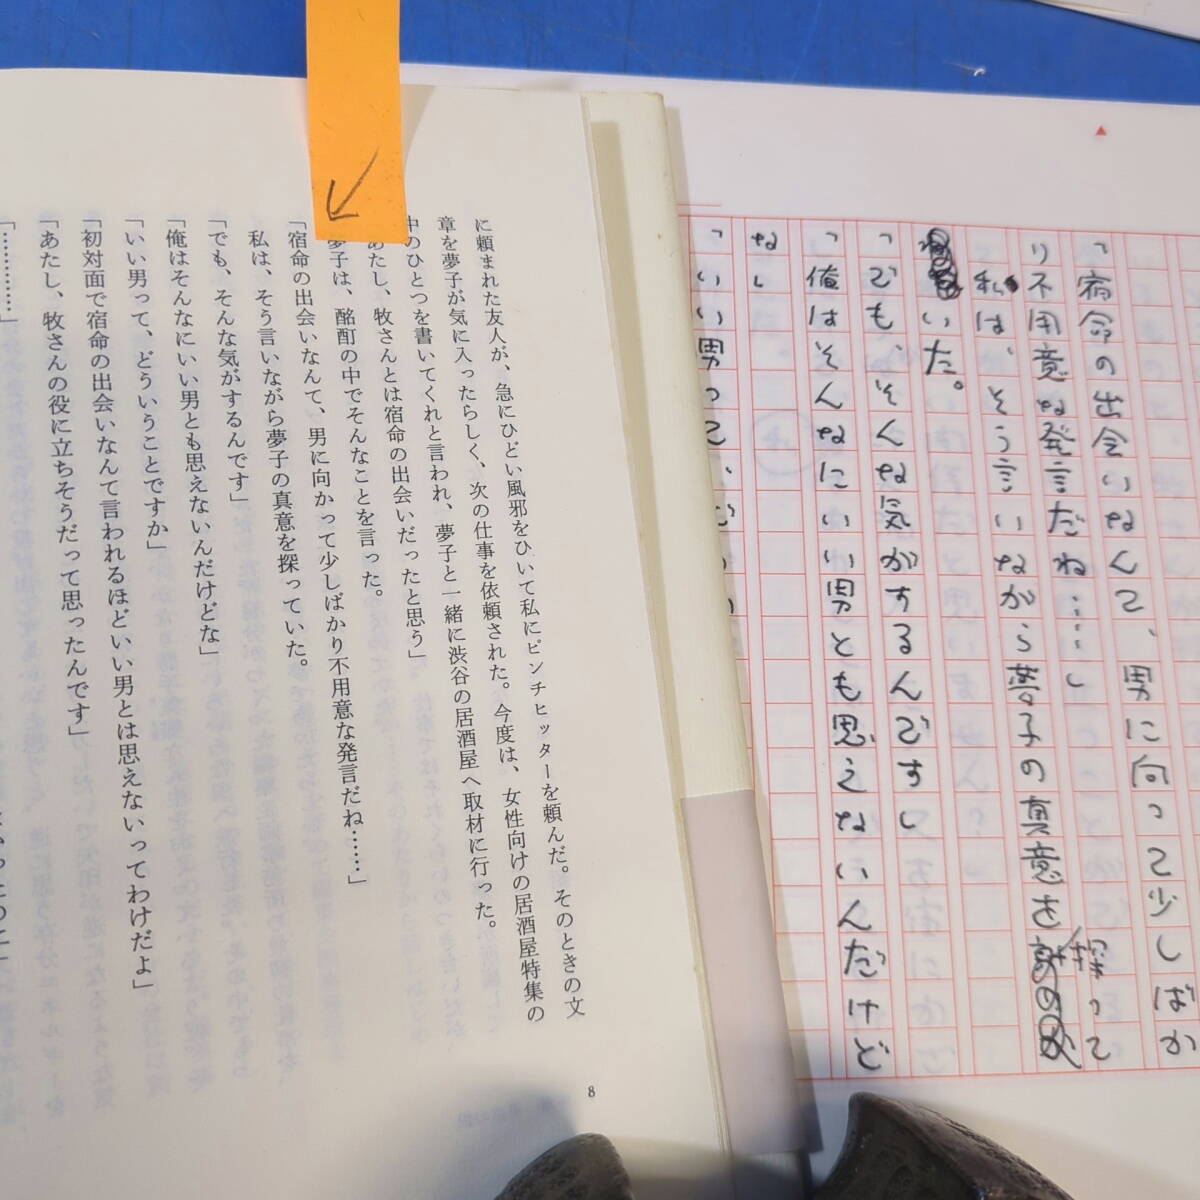 「宿命の出会いなんて、男に向って少しばか
り不用意な発言だね……」
私は、そう言いながら夢子の真意を探って
いた。
「でも、そんな気がするんです」
「俺はそんなにいい男とも思えないんだけど
な」
「いい男って、
に頼まれた友人が、急にひどい風邪をひいて私にピンチヒッターを頼んだ。そのときの文
章を夢子が気に入ったらしく、次の仕事を依頼された。今度は、女性向けの居酒屋特集の
中のひとつを書いてくれと言われ、夢子と一緒に渋谷の居酒屋へ取材に行った。
あたし、牧さんとは宿命の出会いだったと思う」
夢子は、酩酊の中でそんなことを言った。
「宿命の出会いなんて、男に向かって少しばかり不用意な発言だね……」
私は、そう言いながら夢子の真意を探っていた。
「でも、そんな気がするんです」
「俺はそんなにいい男とも思えないんだけどな」
「いい男って、どういうことですか」
「初対面で宿命の出会いなんて言われるほどいい男とは思えないってわけだよ」
「あたし、牧さんの役に立ちそうだって思ったんです」
「…………」
8